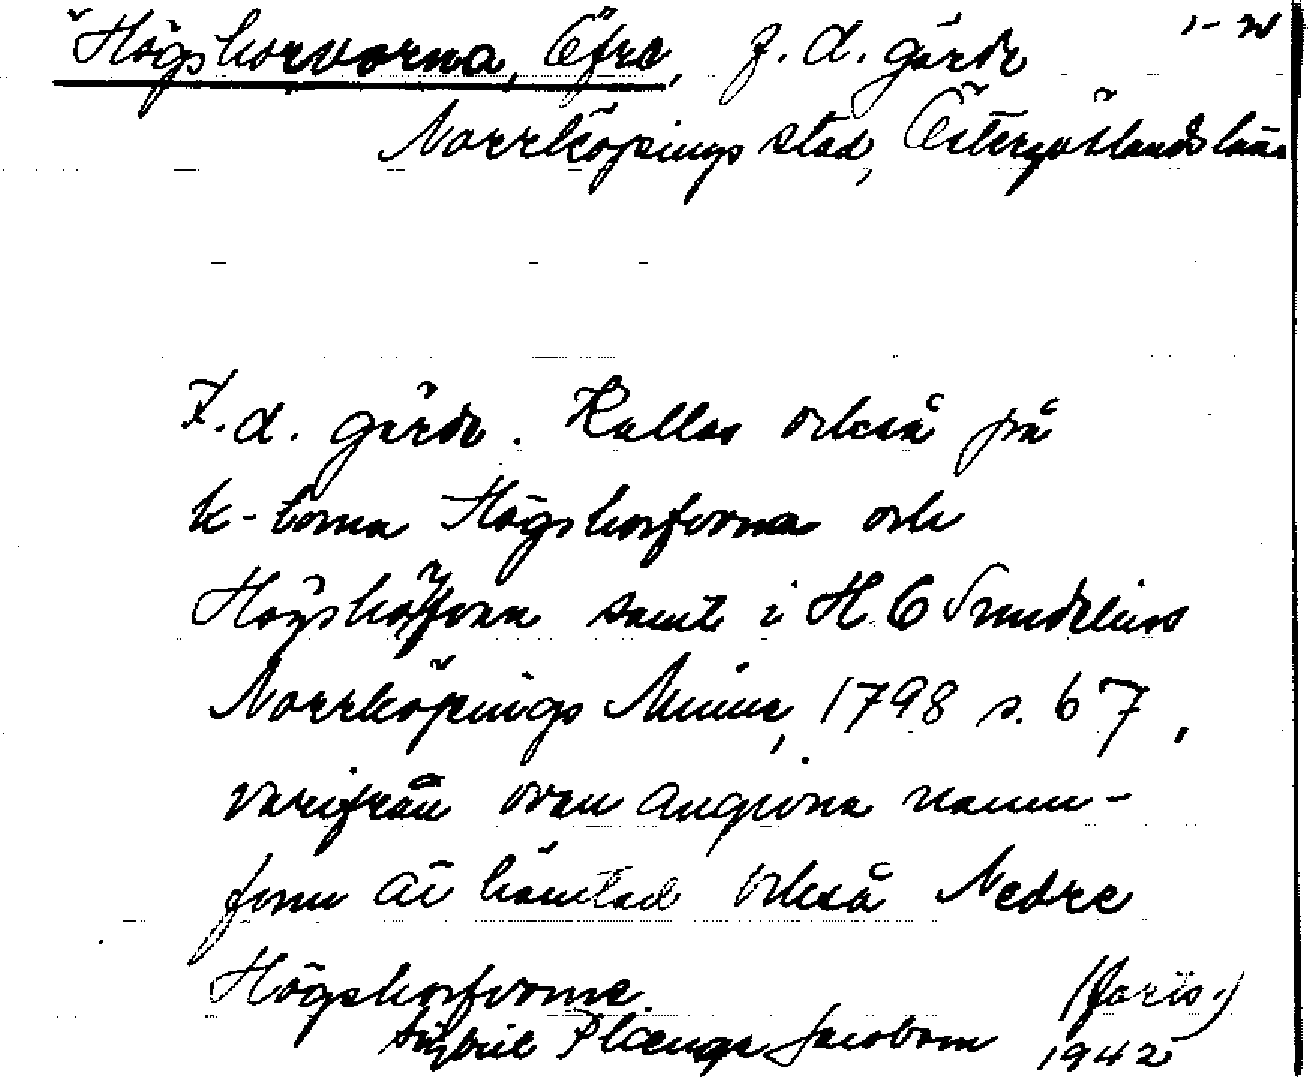 Högskorvorna, Öfre, f. d. gärde
Norrköpings stad, Östergötlands län
F. d. gärde. Kallas också på
k-borna Högskorfvorna och
samt i H C Sundelius
Norrköpings Minne, 1798 s. 67,
varifrån ovan angivna namn-
form är hämtad också Nedre
Högskorfvorna.
(förts.)
Plænge Jacobson 1942